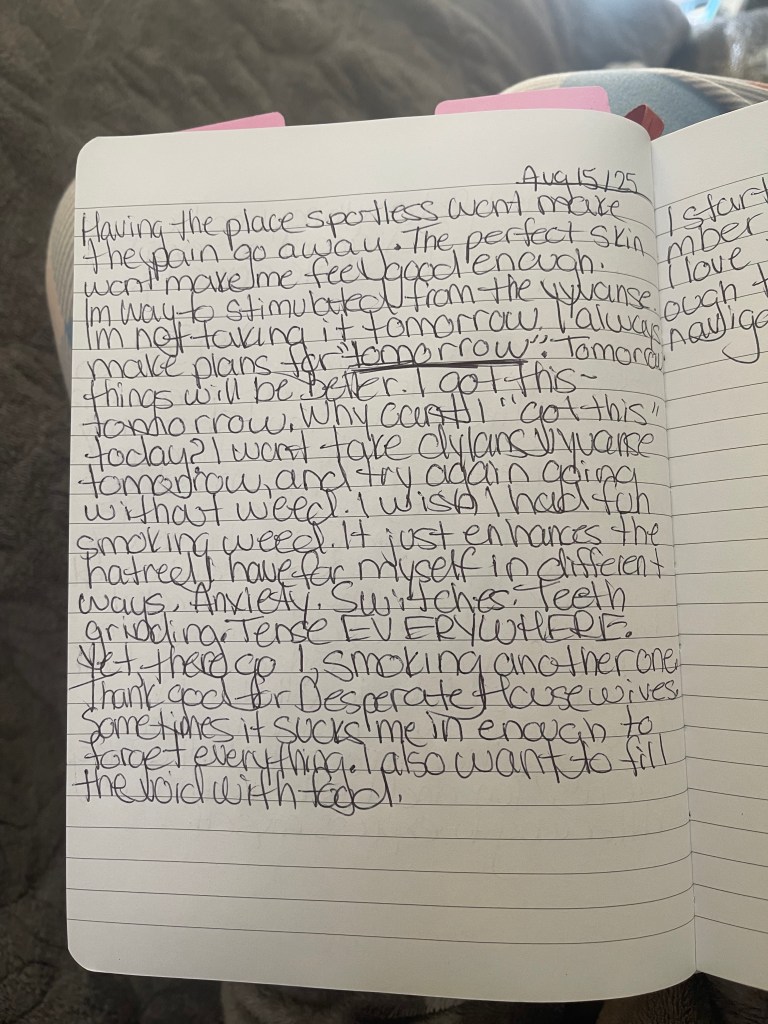 Aug 15/25
Having the place spotless wont make
the pain go away. The perfect skin
wont make me feel good enough.
Im way to stimulated from the vyvanse
Im not taking it tomorrow. I always
make plans for "tomorrow". Tomorrow
things will be better. I got this -
tomorrow. Why cant I "got this"
today? I wont take dylans vyvanse
tomorrow, and try again going
without weed. I wish I had fun
smoking weed. It just enhances the
hatred I have for myself in different
ways. Anxiety. Switches. Teeth
grinding. Tense EVERYWHERE.
Yet, there go I, smoking another one.
Thank god for Desperate Housewives.
Sometimes it sucks me in enough to
forget everything. I also want to fill
the void with food.
I start
mber
I love
ough t
naviga